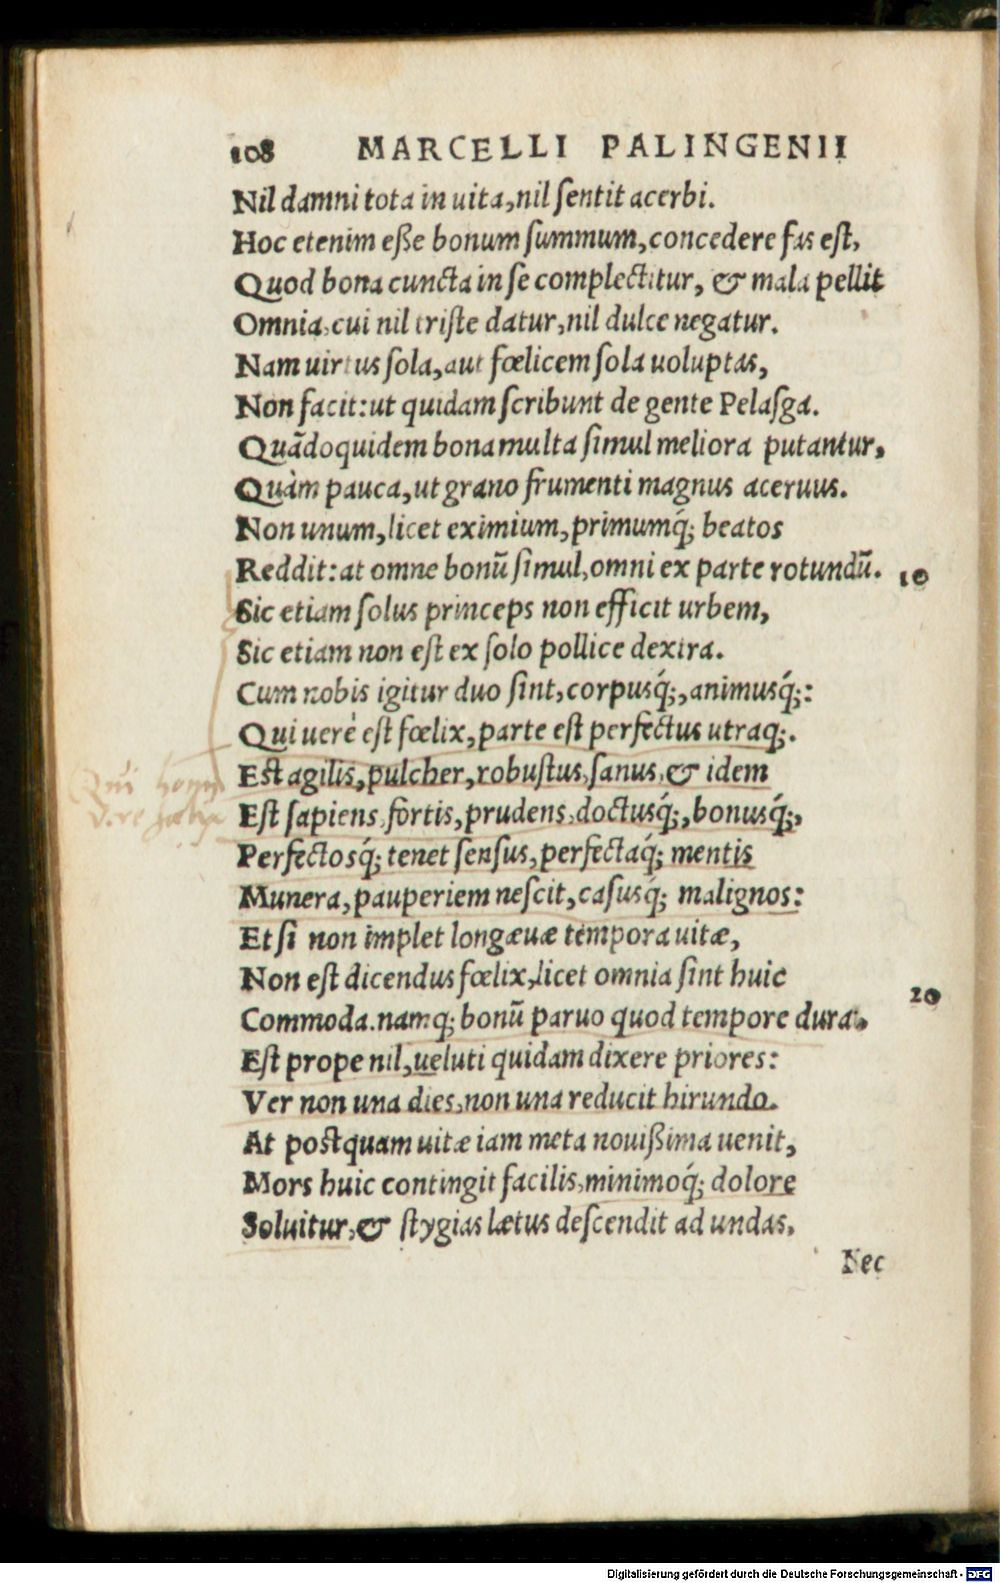 108 MARCELLI PALINGENII
Nil damni tota in uita, nil ſentit acerbi.
Hoc etenim eſſe bonum ſummum, concedere fas eſt,
Quod bona cuncta in ſe complectitur, & mala pellit
Omnia, cui nil triſte datur, nil dulce negatur.
Nam uirtus ſola, aut fœlicem ſola uoluptas,
Non facit: ut quidam ſcribunt de gente Pelaſga.
Quādoquidem bona multa ſimul meliora putantur,
Quàm pauca, ut grano frumenti magnus aceruus.
Non unum, licet eximium, primumq́; beatos
Reddit: at omne bonū ſimul, omni ex parte rotundū. 10
Sic etiam ſolus princeps non efficit urbem,
Sic etiam non eſt ex ſolo pollice dextra.
Cum nobis igitur duo ſint, corpusq́;, animusq́;:
Qui uerè eſt fœlix, parte eſt perfectus utraq;.
Eſt agilis, pulcher, robuſtus, ſanus, & idem
Eſt ſapiens, fortis, prudens, doctusq́;, bonusq́;,
Perfectosq́; tenet ſenſus, perfectaq́; mentis
Munera, pauperiem neſcit, caſusq́; malignos:
Et ſi non implet longæuæ tempora uitæ,
Non eſt dicendus fœlix, licet omnia ſint huic
20
Commoda. namq; bonū paruo quod tempore durat,
Eſt prope nil, ueluti quidam dixere priores:
Ver non una dies, non una reducit hirundo.
At poſtquam uitæ iam meta nouiſſima uenit,
Mors huic contingit facilis, minimoq́; dolore
Soluitur, & ſtygias lætus deſcendit ad undas,
Nec
Digitalisierung gefördert durch die Deutsche Forschungsgemeinschaft - DFG